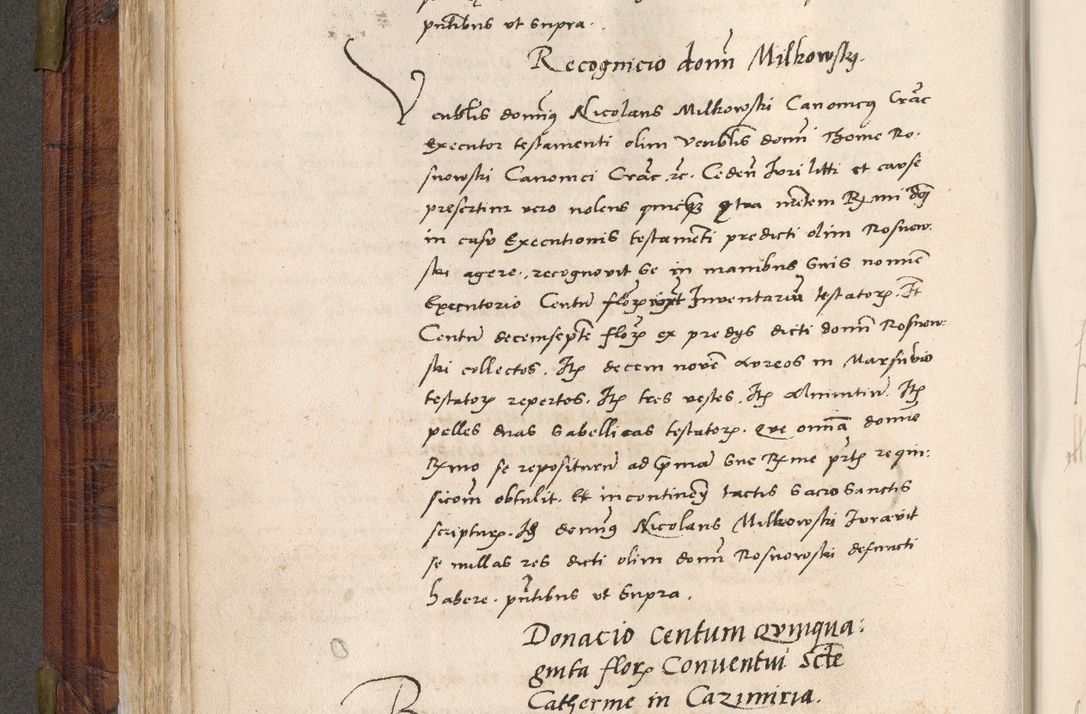 pntibus ut supra.
Recognicio domi Milkowsky.
Venblis domis Nicolaus Milkowski Canonicus Crac
Executor testamenti olim venblis domi Thome Ro-
snowski Canonici Crac. zc. Cedens Iuri litti et cause
presertim vero nolens quicquam contra mentem Rmi dni
in casu Executionis testamenti predicti olim Rosnow-
ski agere. recognovit se in manibus suis nomine
Executorio Centu florenos iuxta Inventariu testatoris. Et
Centu decemsepte florenos ex predys dicti domi Rosnow-
ski collectos. Item decem novem aureos in Marsupio
testatoris repertos. Item tres vestes. Item Alnuntiu. Item
pelles duas sabellicas testatoris. que omnia domino
Rmo se repositurum ad prima sue Rme prtis requi-
sicom obtulit. Et incontinenti tactis sacrosanctis
scripturis. Idem domis Nicolaus Milkowski Iuravit
se nullas res dicti olim domi Rosnowski defuncti
habere. pntibus ut supra.
Donacio centum quinqua-
ginta floren Conventui scte
Catherine in Cazimiria.